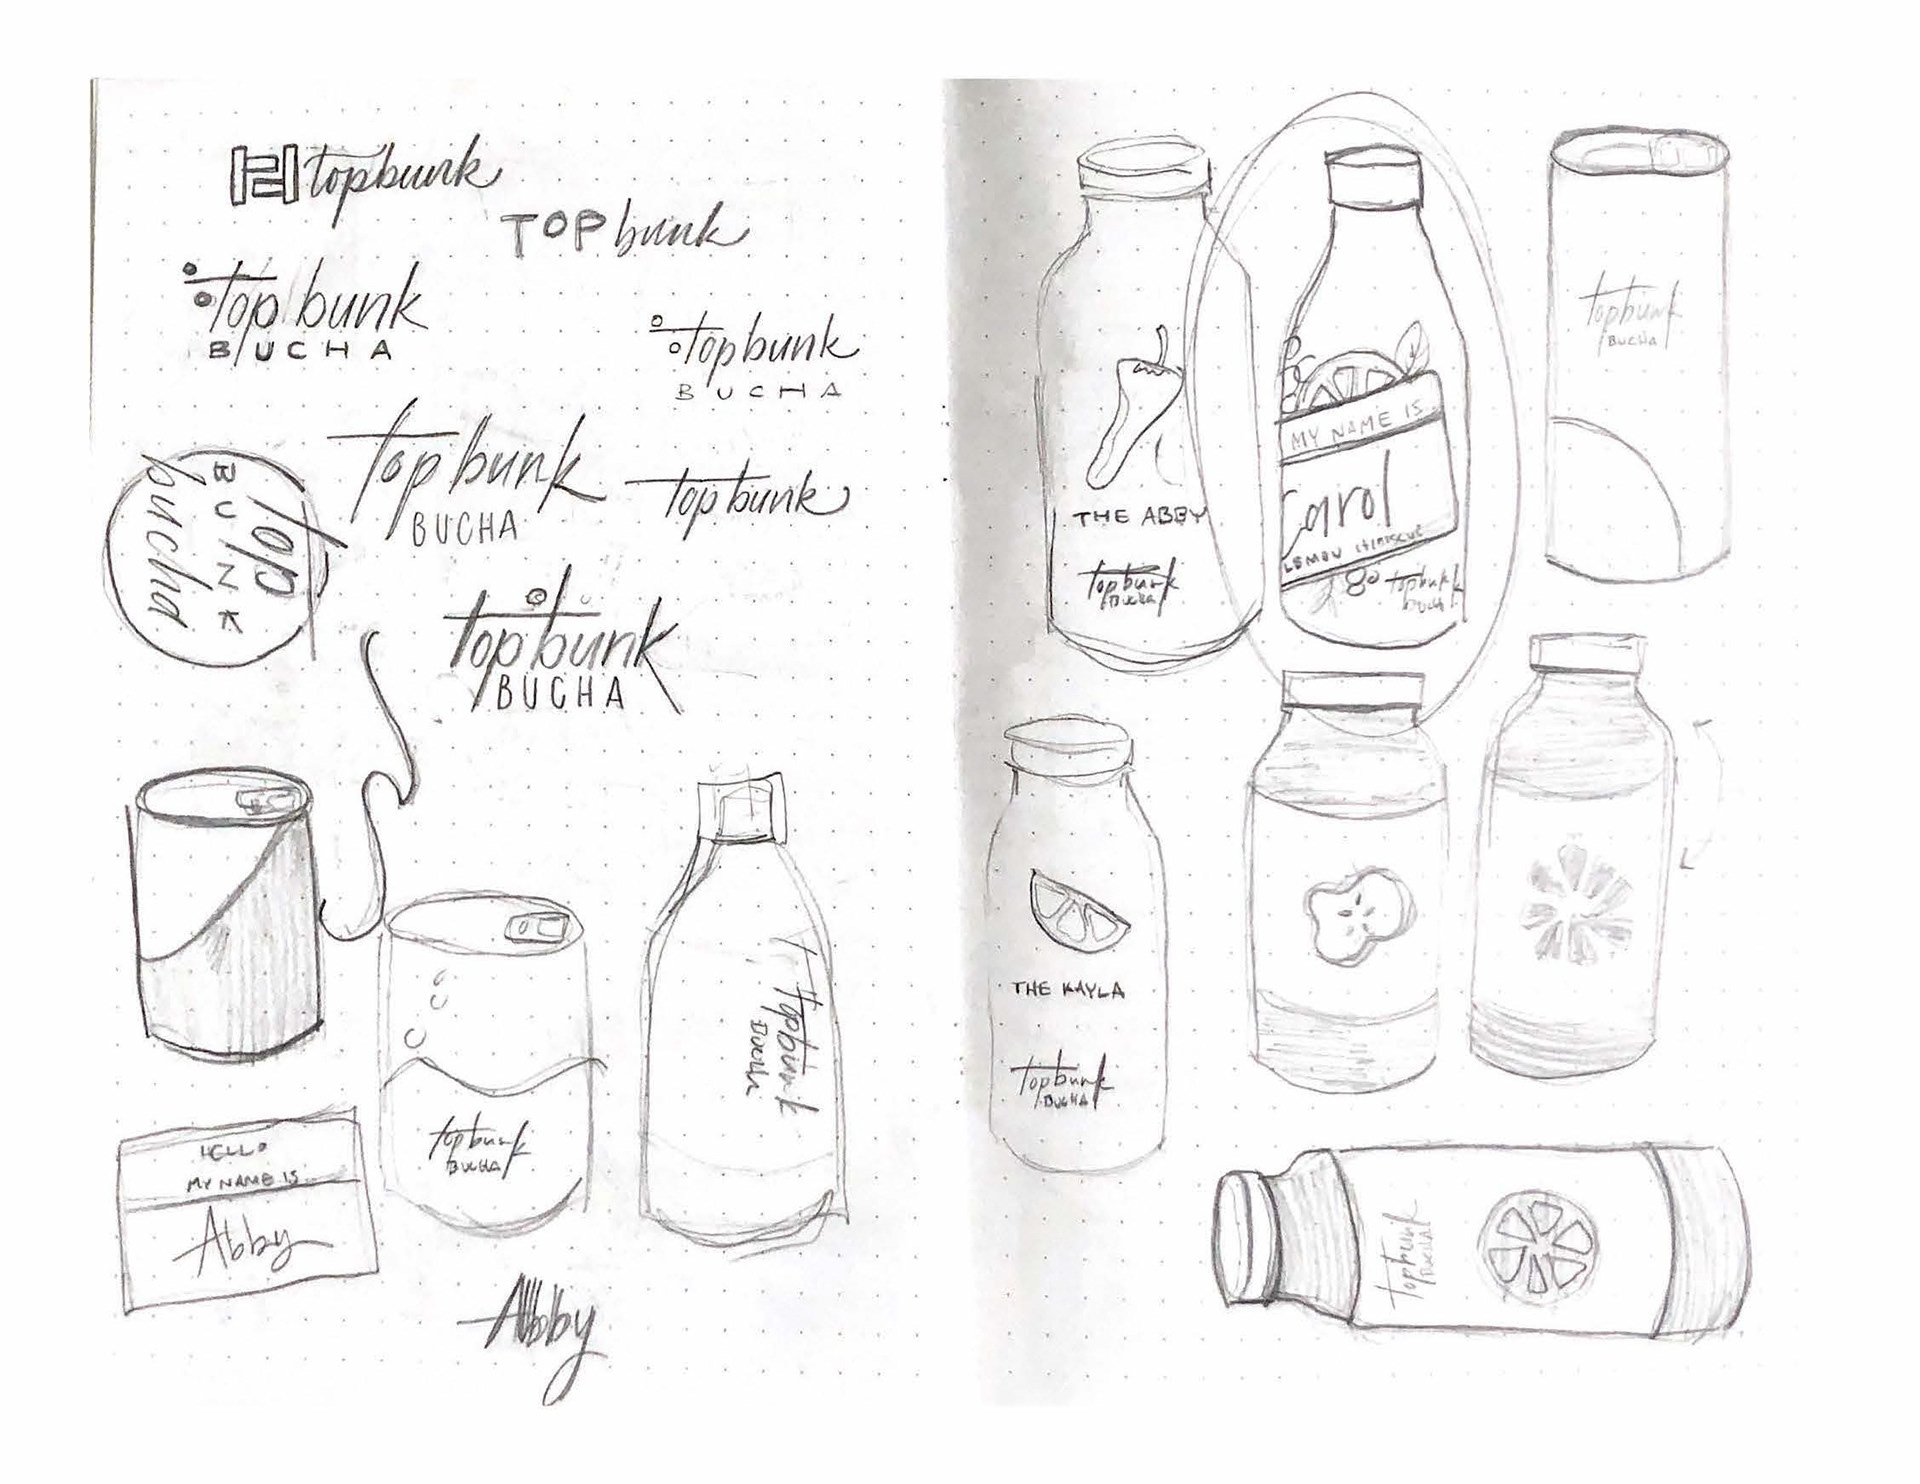 topbunk
TOP bunk
top bunk
BUCHA
topbunk
BUCHA
top bunk
BUCHA
topbunk
top
BUNK
bucha
top bunk
BUCHA
topbunk
BUCHA
topbunk
Bucha
HELLO
MY NAME IS
Abby
Abby
THE ABBY
topbunk
BUCHA
MY NAME IS
Carol
LEMON HIBISCUS
topbunk
bucha
topbunk
BUCHA
THE KAYLA
topbunk
BUCHA
topbunk
BUCHA